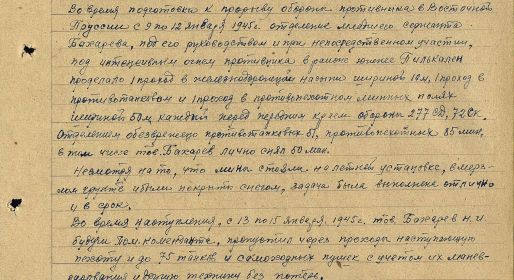 Во время подготовки к прорыву обороны противника в Восточной
Пруссии с 9 по 12 января 1945г. отделение младшего сержанта
Бахарева, под его руководством и при непосредственном участии,
под интенсивным огнем противника в районе южнее Пилькален
проделало 1 проход в железнодорожной насыпи шириной 10м, 1 проход в
противотанковом и 1 проход в противопехотном минных полях
шириной 50м каждый перед передним краем обороны 277 СД, 72 СК.
Отделением обезврежено противотанковых 51, противопехотных 85 мин,
в том числе тов. Бахарев лично снял 60 мин.
Несмотря на то, что мины стояли на летней установке, в мерз-
лом грунте и были покрыты снегом, задача была выполнена отлично
и в срок.
Во время наступления, с 13 по 15 января 1945г. тов. Бахарев Н.И.
будучи пом. коменданта, пропустил через проходы наступающую
пехоту и до 75 танков и самоходных пушек с учетом их
и другую технику без потерь.